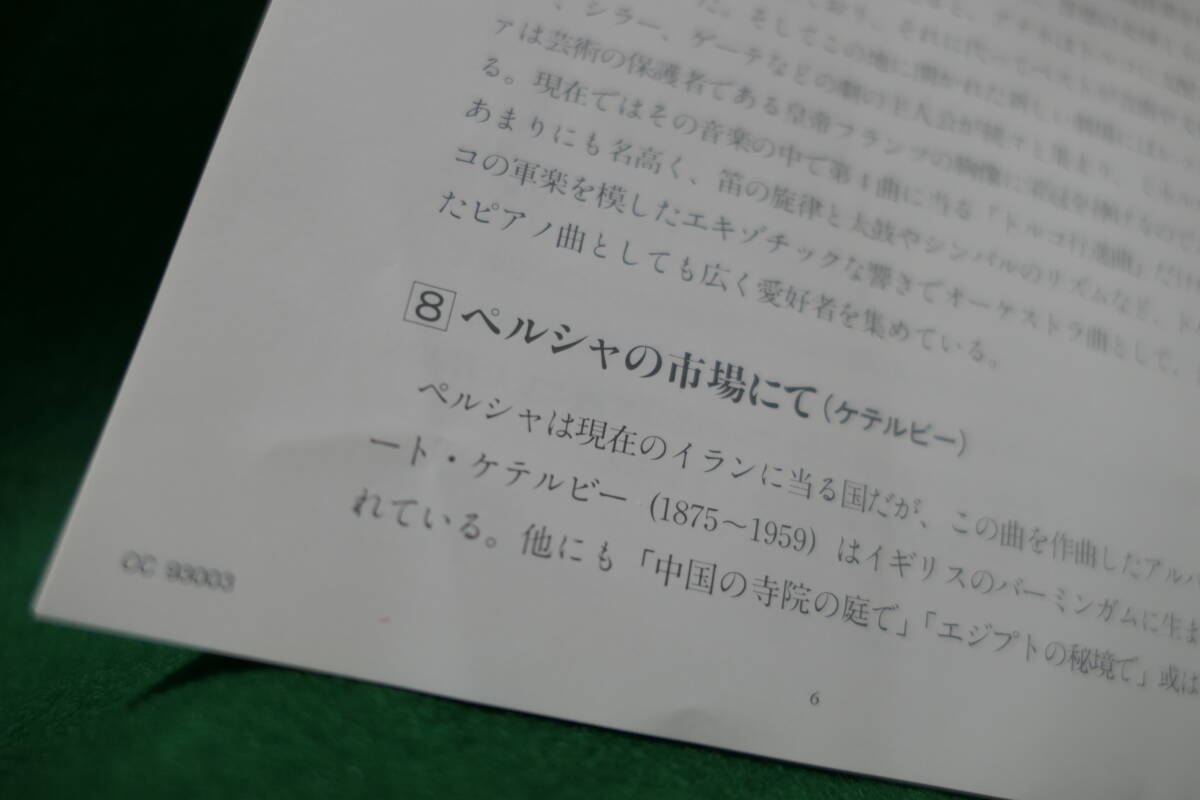 、シラー、ゲーテなどの劇の主人公が続々と集まり、
ァは芸術の保護者である皇帝フランツの胸像に
る。現在ではその音楽の中で第4曲に当る「トルコ行進曲」だけが
あまりにも名高く、笛の旋律と太鼓やシンバルのリズムなど、トル
コの軍楽を模したエキゾチックな響きでオーケストラ曲として、
たピアノ曲としても広く愛好者を集めている。
8 ペルシャの市場にて(ケテルビー)
ペルシャは現在のイランに当る国だが、この曲を作曲したアルバ
ート・ケテルビー (1875〜1959) はイギリスのバーミンガムに生ま
れている。他にも「中国の寺院の庭で」「エジプトの秘境で」或は
CC 93003
6